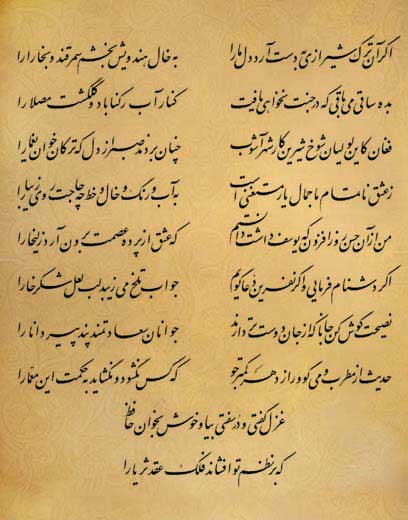 اگر آن ترک شیرازی به دست آرد دل ما را به خال هندویش بخشم سمرقند و بخارا را
بده ساقی می باقی که در جنت نخواهی یافت کنار آب رکناباد و گلگشت مصلا را
فغان کاین لولیان شوخ شیرین کار شهرآشوب چنان بردند صبر از دل که ترکان خوان یغما را
ز عشق ناتمام ما جمال یار مستغنی است به آب و رنگ و خال و خط چه حاجت روی زیبا را
من از آن حسن روزافزون که یوسف داشت دانستم که عشق از پرده عصمت برون آرد زلیخا را
اگر دشنام فرمایی و گر نفرین دعا گویم جواب تلخ می‌زیبد لب لعل شکرخا را
نصیحت گوش کن جانا که از جان دوست‌تر دارند جوانان سعادتمند پند پیر دانا را
حدیث از مطرب و می گو و راز دهر کمتر جو که کس نگشود و نگشاید به حکمت این معما را
غزل گفتی و در سفتی بیا و خوش بخوان حافظ
که بر نظم تو افشاند فلک عقد ثریا را